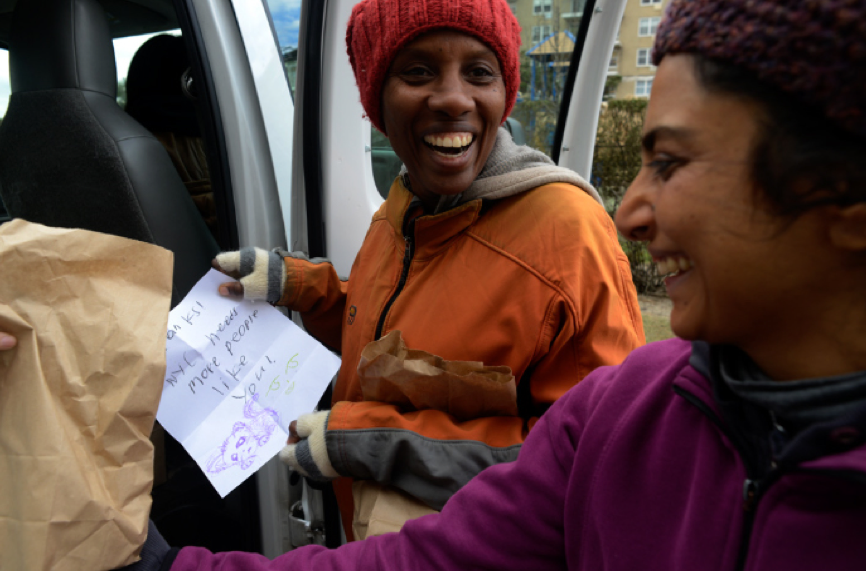 anks!
NYC needs
more people
like
you!